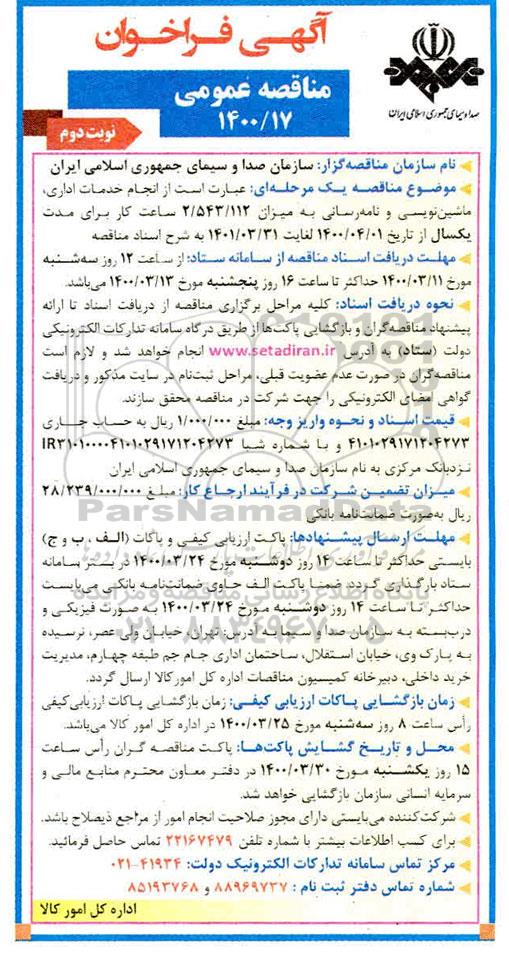 آگهی فراخوان
مناقصه عمومی
۱۴۰۰/۱۷
نوبت دوم
صدا و سیمای جمهوری اسلامی ایران
نام سازمان مناقصه‌گزار: سازمان صدا و سیمای جمهوری اسلامی ایران
موضوع مناقصه یک مرحله‌ای: عبارت است از انجام خدمات اداری،
ماشین‌نویسی و نامه‌رسانی به میزان ۲/۵۴۳/۱۱۲ ساعت کار برای مدت
یکسال از تاریخ ۱۴۰۰/۰۴/۰۱ لغایت ۱۴۰۱/۰۳/۳۱ به شرح اسناد مناقصه
مهلت دریافت اسناد مناقصه از سامانه ستاد: از ساعت ۱۲ روز سه‌شنبه
مورخ ۱۴۰۰/۰۳/۱۱ حداکثر تا ساعت ۱۶ روز پنجشنبه مورخ ۱۴۰۰/۰۳/۱۳ می‌باشد.
نحوه دریافت اسناد: کلیه مراحل برگزاری مناقصه از دریافت اسناد تا ارائه
پیشنهاد مناقصه‌گران و بازگشایی پاکت‌ها از طریق درگاه سامانه تدارکات الکترونیکی
دولت (ستاد) به آدرس www.setadiran.ir انجام خواهد شد و لازم است
مناقصه‌گران در صورت عدم عضویت قبلی، مراحل ثبت‌نام در سایت مذکور و دریافت
گواهی امضای الکترونیکی را جهت شرکت در مناقصه محقق سازند.
قیمت اسناد و نحوه واریز وجه: مبلغ ۱/۰۰۰/۰۰۰ ریال به حساب جاری
۴۱۰۱۰۲۹۱۷۱۲۰۴۲۷۳ و با شماره شبا IR۳۱۰۱۰۰۰۰۴۱۰۱۰۲۹۱۷۱۲۰۴۲۷۳
نزد بانک مرکزی به نام سازمان صدا و سیمای جمهوری اسلامی ایران
میزان تضمین شرکت در فرآیند ارجاع کار: مبلغ ۲۸/۲۳۹/۰۰۰/۰۰۰
ریال به‌صورت ضمانت‌نامه بانکی
مهلت ارسال پیشنهادها: پاکت ارزیابی کیفی و پاکات (الف، ب و ج)
بایستی حداکثر تا ساعت ۱۴ روز دوشنبه مورخ ۱۴۰۰/۰۳/۲۴ در بستر سامانه
ستاد بارگذاری گردد. ضمنا پاکت الف حاوی ضمانت‌نامه بانکی می‌بایست
حداکثر تا ساعت ۱۴ روز دوشنبه مورخ ۱۴۰۰/۰۳/۲۴ به صورت فیزیکی و
درب‌بسته به سازمان صدا و سیما به آدرس: تهران، خیابان ولی عصر، نرسیده
به پارک وی، خیابان استقلال، ساختمان اداری جام جم طبقه چهارم، مدیریت
خرید داخلی، دبیرخانه کمیسیون مناقصات اداره کل امور کالا ارسال گردد.
زمان بازگشایی پاکات ارزیابی کیفی: زمان بازگشایی پاکات ارزیابی کیفی
رأس ساعت ۸ روز سه‌شنبه مورخ ۱۴۰۰/۰۳/۲۵ در اداره کل امور کالا می‌باشد.
محل و تاریخ گشایش پاکت‌ها: پاکت مناقصه گران رأس ساعت
۱۵ روز یکشنبه مورخ ۱۴۰۰/۰۳/۳۰ در دفتر معاون محترم منابع مالی و
سرمایه انسانی سازمان بازگشایی خواهد شد.
شرکت‌کننده می‌بایستی دارای مجوز صلاحیت انجام امور از مراجع ذیصلاح باشد.
برای کسب اطلاعات بیشتر با شماره تلفن ۲۲۱۶۷۴۷۹ تماس حاصل فرمائید.
مرکز تماس سامانه تدارکات الکترونیک دولت: ۴۱۹۳۴-۰۲۱
شماره تماس دفتر ثبت نام: ۸۸۹۶۹۷۳۷ و ۸۵۱۹۳۷۶۸
اداره کل امور کالا
ParsNamadData
۰۲۱-۸۸۳۴۹۶۷۰-۵